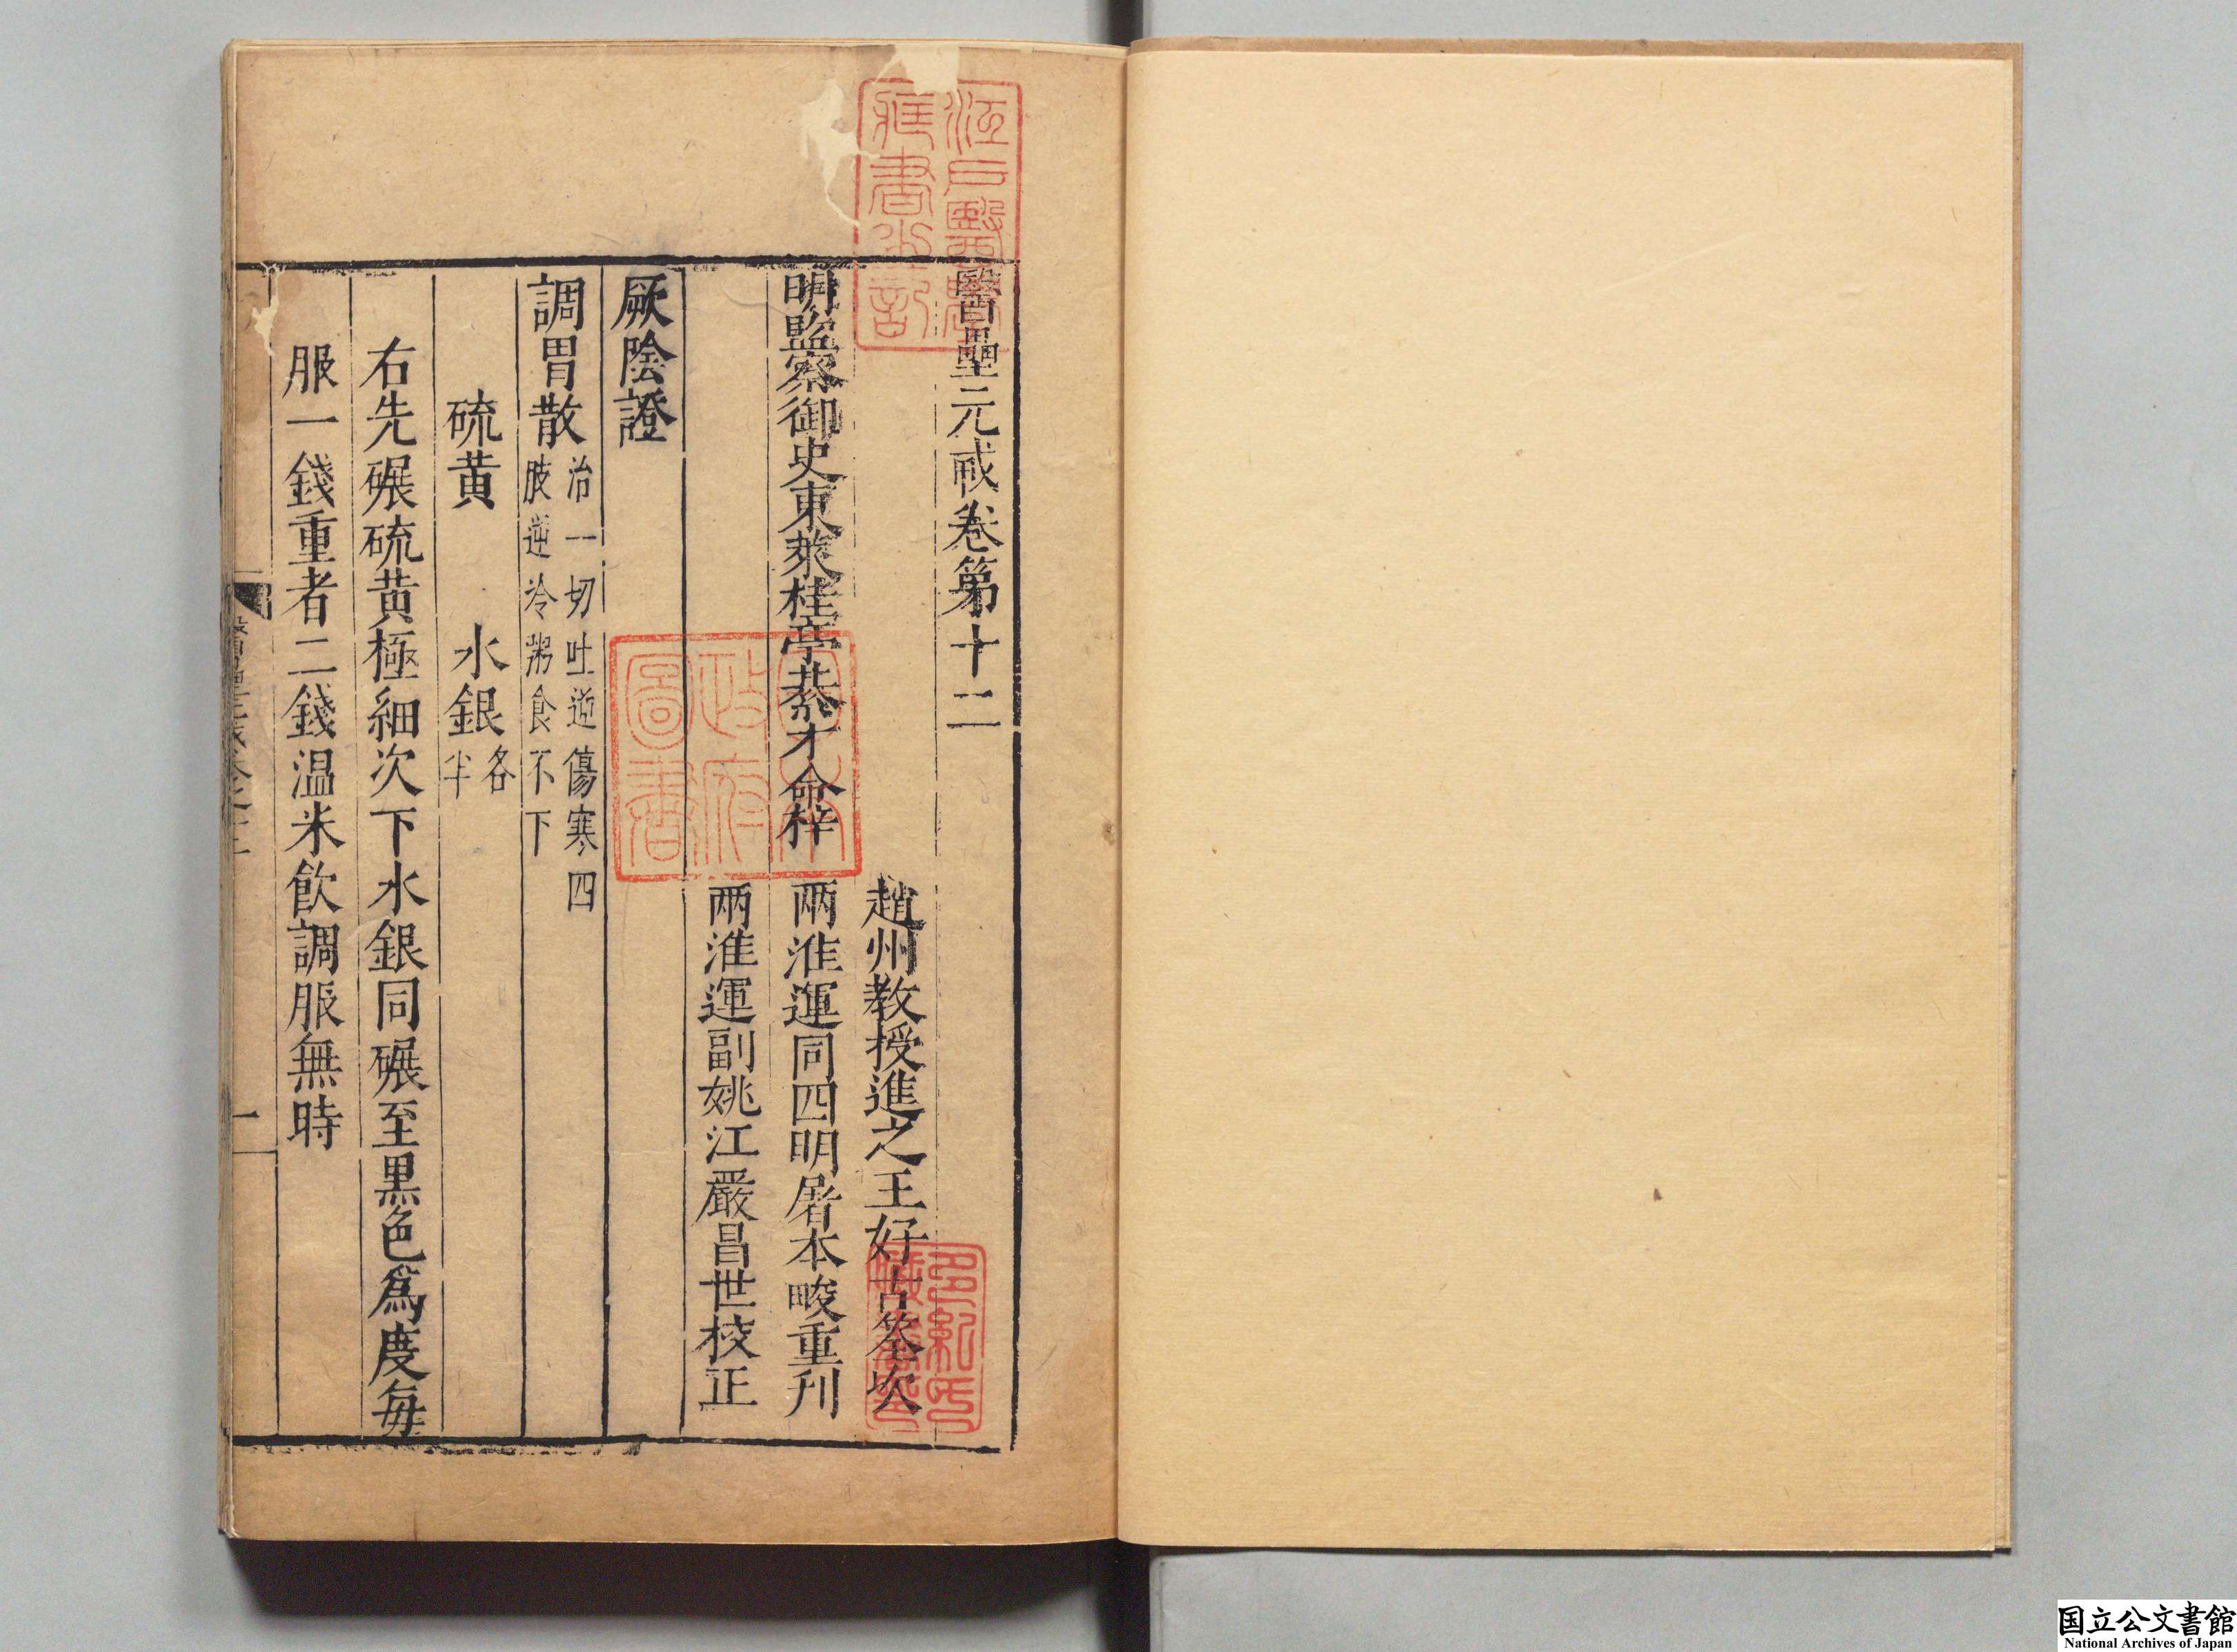 醫壘元戎卷第十二
趙州教授進之王好古筌次
明監察御史東萊桂亭蔡才命梓
兩淮運同四明屠本畯重刊
兩淮運副姚江嚴昌世校正
厥陰證
調胃散治一切吐逆傷寒四
肢逆冷粥食不下
硫黃 水銀各
半
右先碾硫黃極細次下水銀同碾至黒色爲度每
服一錢重者二錢温米飲調服無時
江戶醫學
藏書之記
日本
政府
圖書
多紀氏
藏書印
国立公文書館
National Archives of Japan